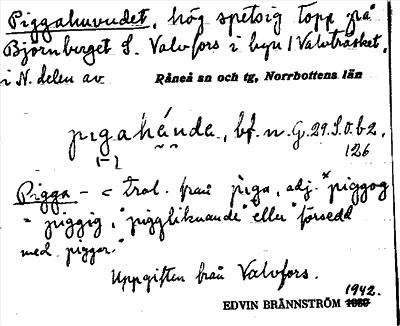 Piggahuvudet, hög spetsig topp på
Björnberget S. Valvfors i byn / Valvträsket,
i N. delen av Råneå sn och tg, Norrbottens län
pigahánda, bf. n. G. 29. S. o. b2,
1-2 126
Pigga - < trol. fraǹ piga, adj. *piggog
= piggig, "piggliknande" eller "försedd
med piggar."
Uppgiften från Valvfors.
1942.
EDVIN BRÄNNSTRÖM 1939